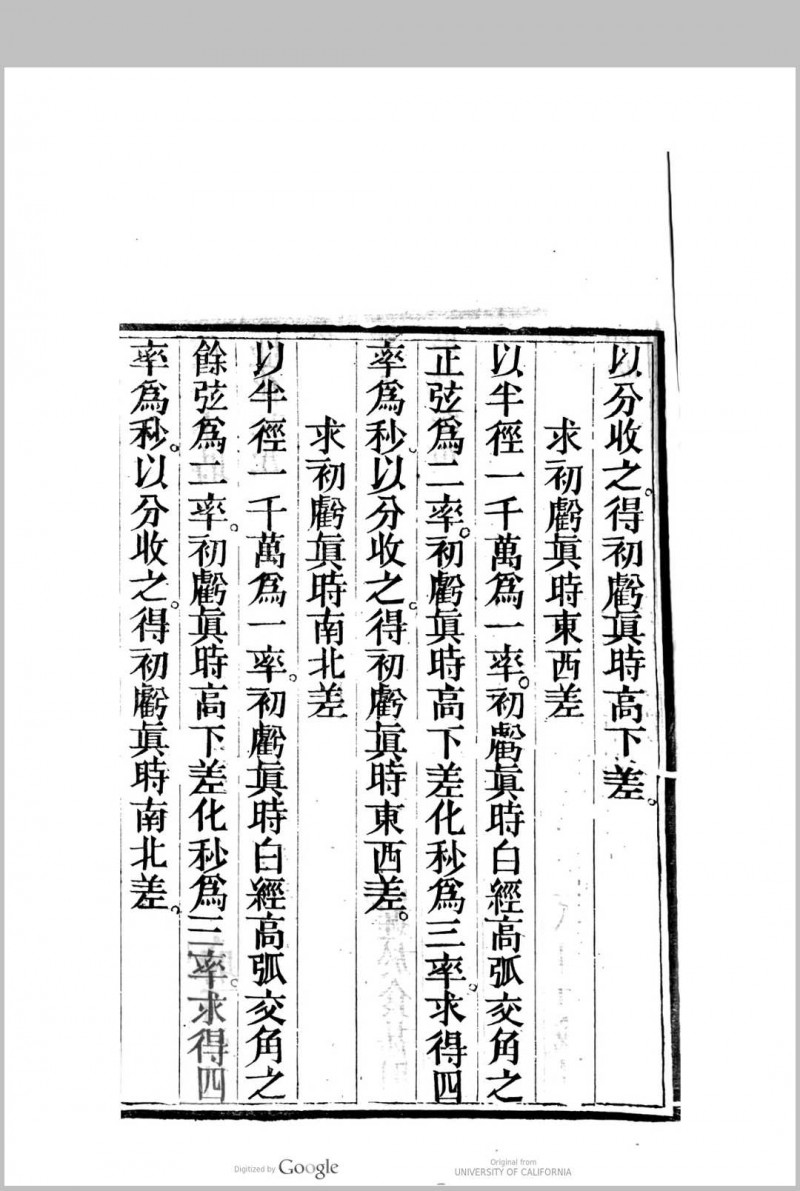 以分收之。得初虧眞時高下差。
求初虧眞時東西差
以半徑一千萬爲一率。初虧眞時白經高弧交角之
正弦爲二率。初虧眞時高下差化秒爲三率。求得四
率爲秒。以分收之。得初虧眞時東西差。
求初虧眞時南北差
以半徑一千萬爲一率。初虧眞時白經高弧交角之
餘弦爲二率。初虧眞時高下差化秒爲三率。求得四
率爲秒。以分收之。得初虧眞時南北差。
Digitized by Google
Original from
UNIVERSITY OF CALIFORNIA